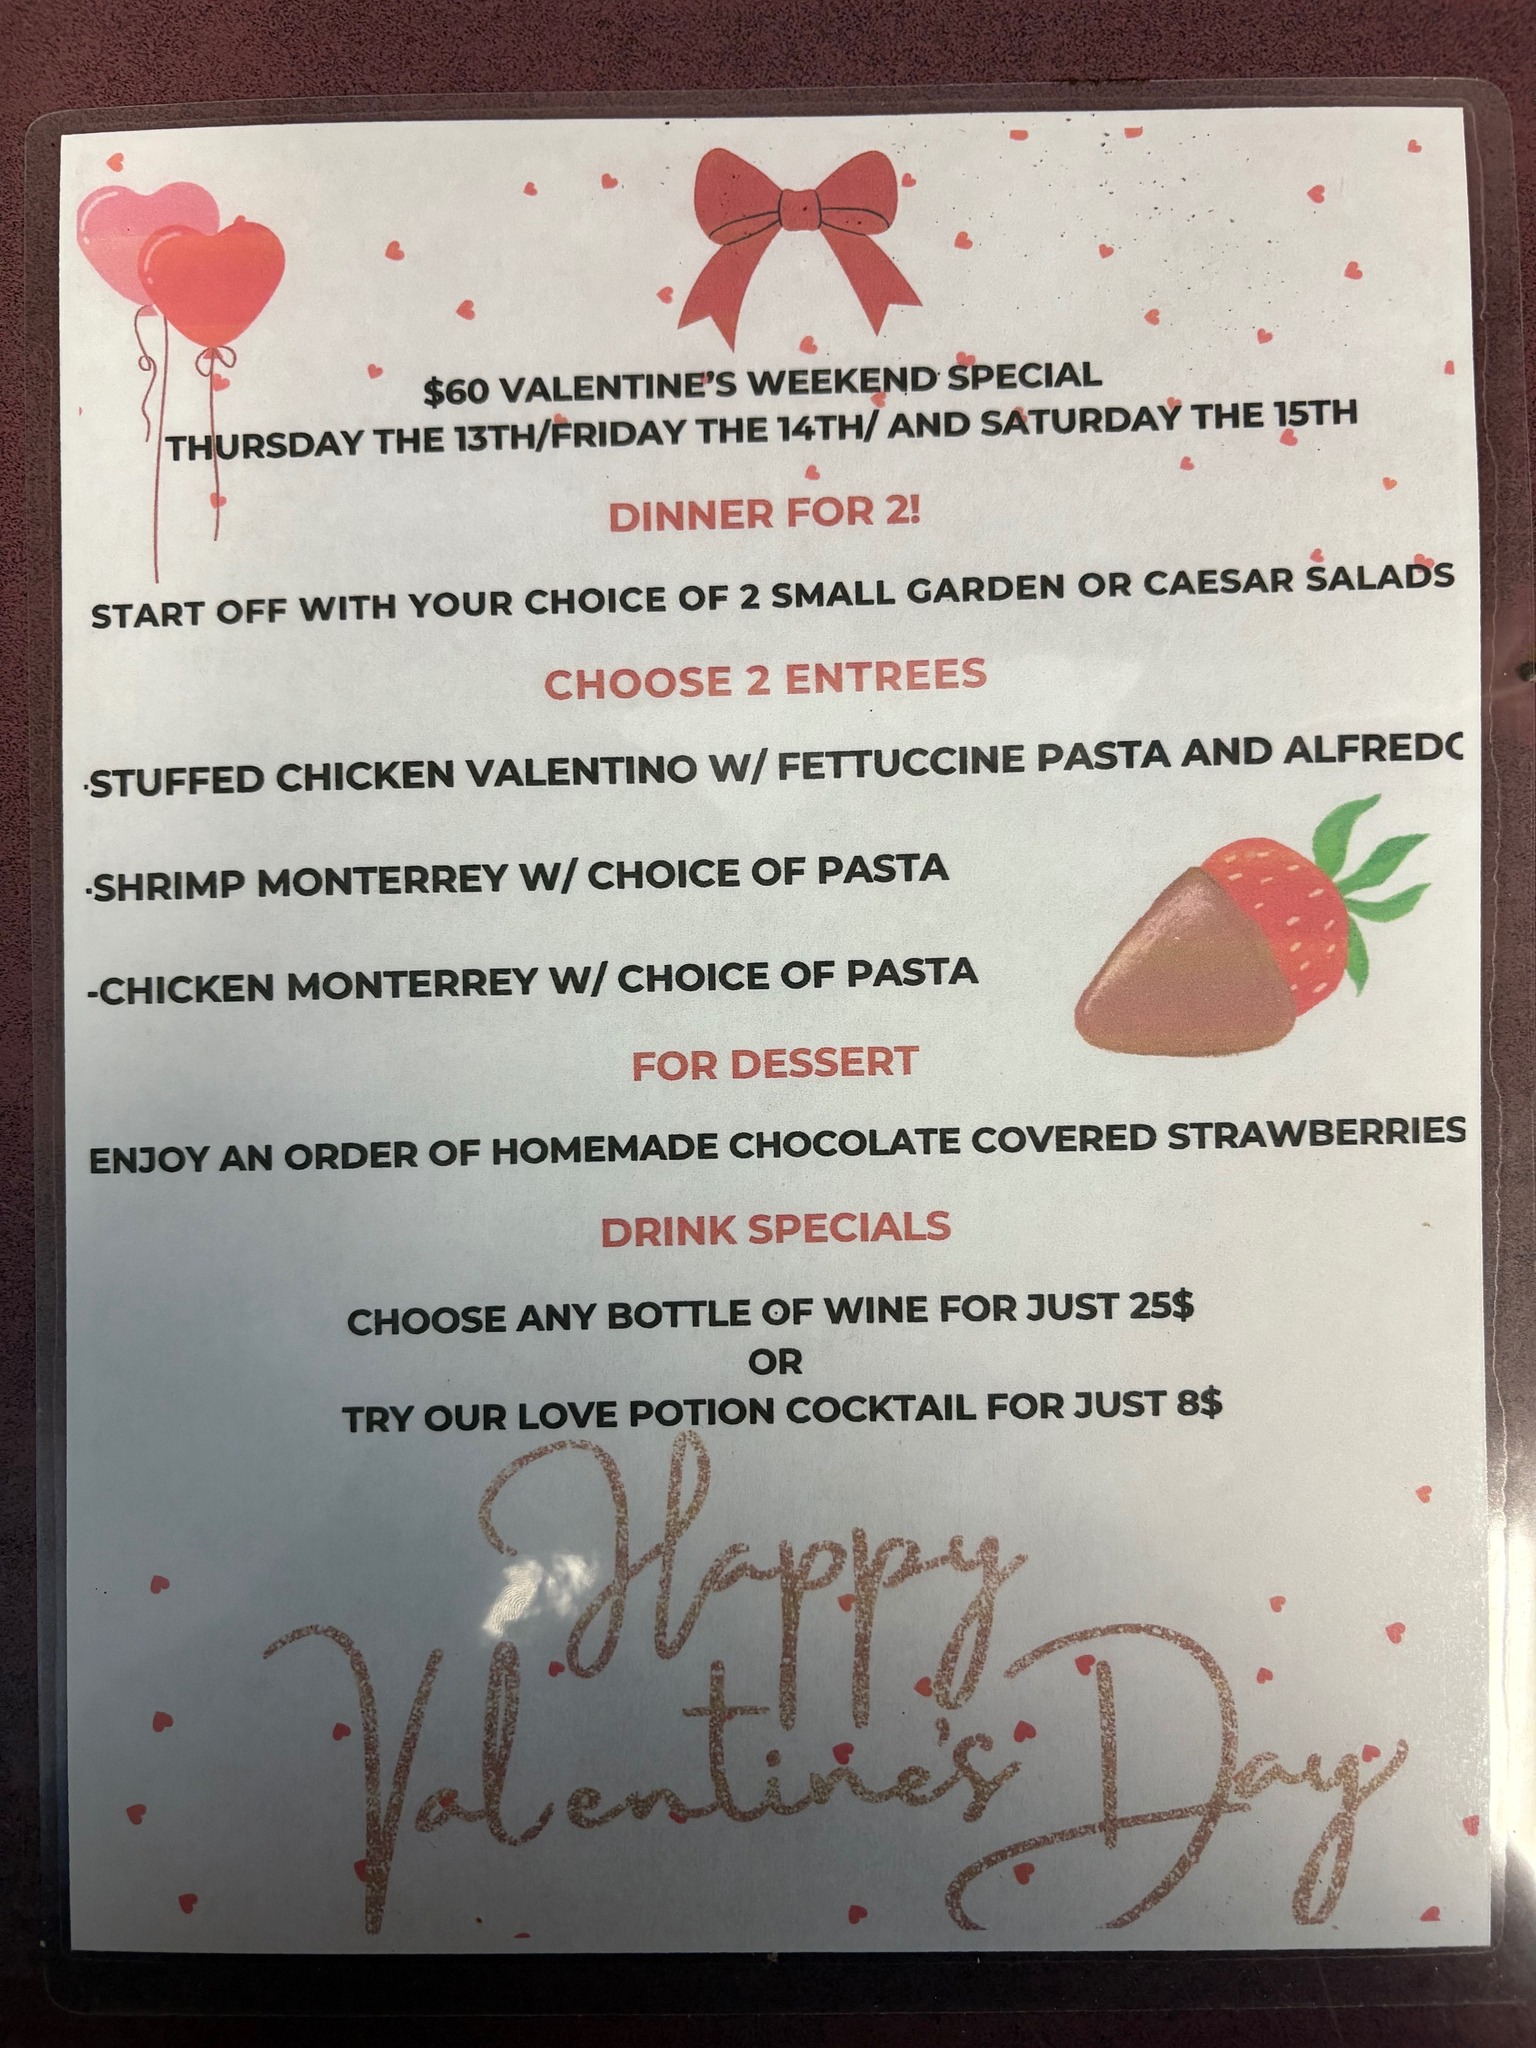 $60 VALENTINE'S WEEKEND SPECIAL
THURSDAY THE 13TH/FRIDAY THE 14TH/ AND SATURDAY THE 15TH
DINNER FOR 2!
START OFF WITH YOUR CHOICE OF 2 SMALL GARDEN OR CAESAR SALADS
CHOOSE 2 ENTREES
·STUFFED CHICKEN VALENTINO W/ FETTUCCINE PASTA AND ALFREDO
·SHRIMP MONTERREY W/ CHOICE OF PASTA
-CHICKEN MONTERREY W/ CHOICE OF PASTA
FOR DESSERT
ENJOY AN ORDER OF HOMEMADE CHOCOLATE COVERED STRAWBERRIES
DRINK SPECIALS
CHOOSE ANY BOTTLE OF WINE FOR JUST 25$
OR
TRY OUR LOVE POTION COCKTAIL FOR JUST 8$
Happy
Valentine's Day